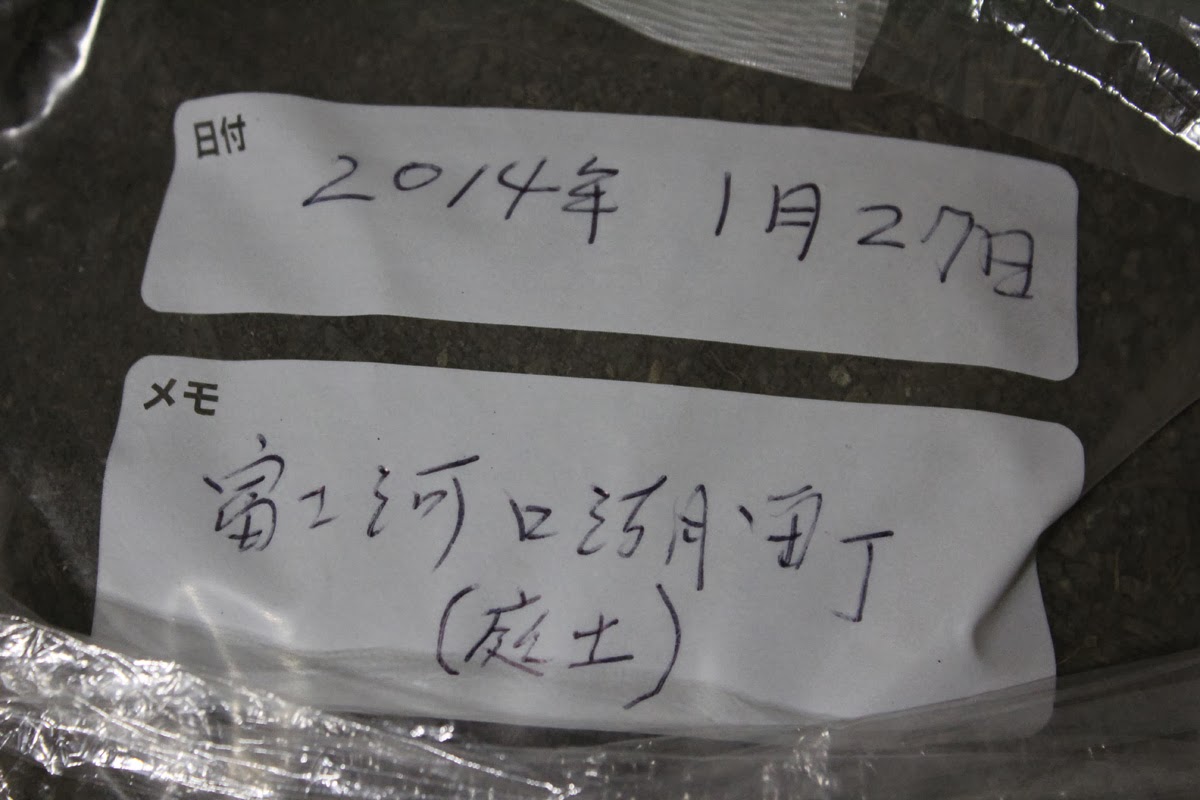 日付
2014年 1月27日
メモ
富士河口湖町
(庭土)